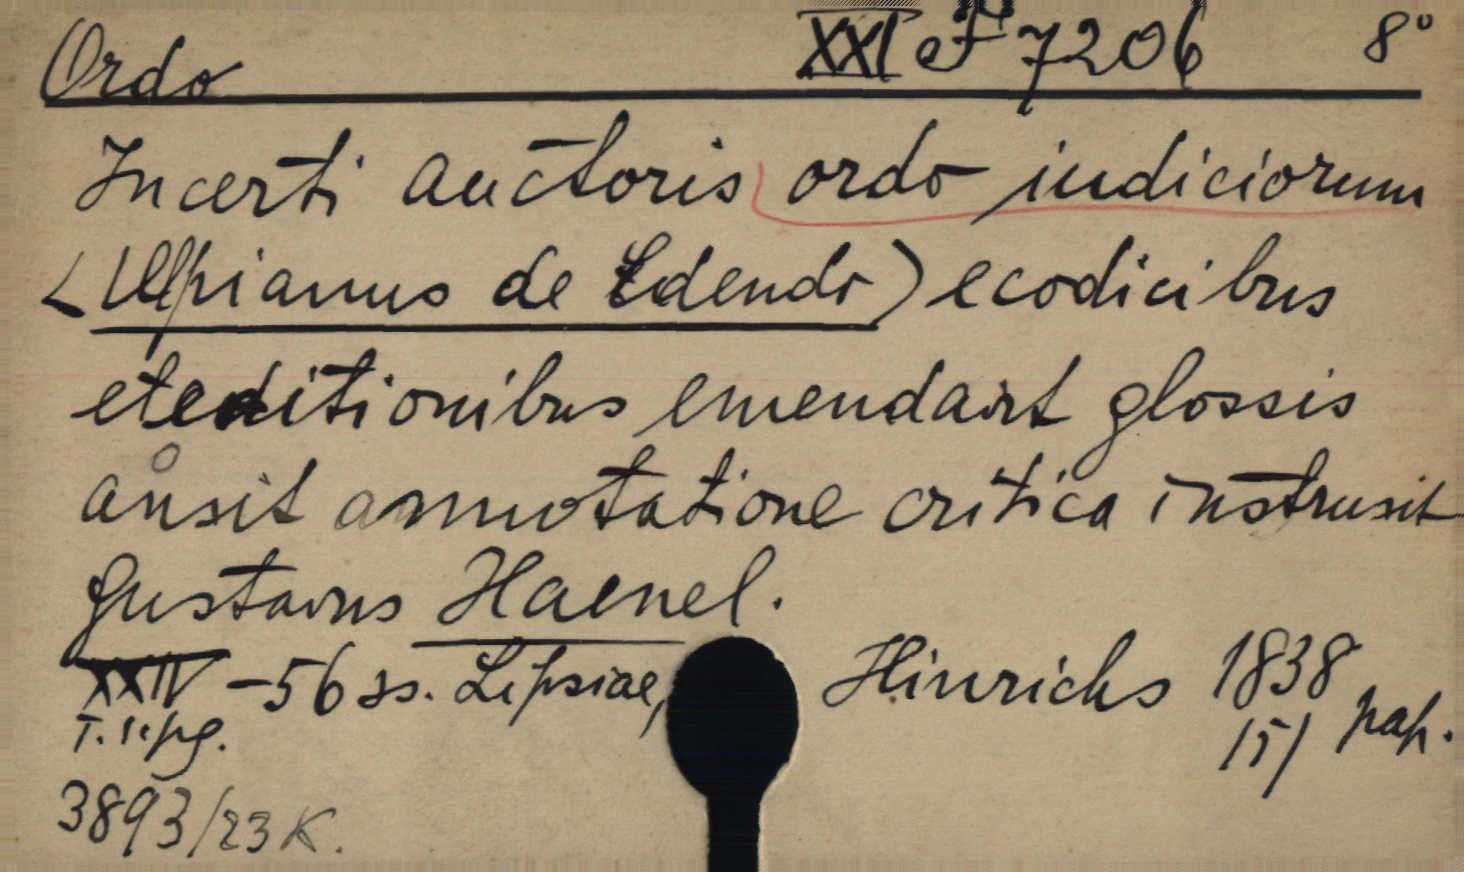 Ordo XXI F 7206 8°
Incerti auctoris ordo iudiciorum
(Ulpianus de Edendo) e codicibus
et editionibus emendavit glossis
ausit annotatione critica instrusit
Gustavus Haenel.
XXIV - 56 ss. Lipsiae, Hinrichs 1838
T. 1. pg. 151 pap.
3893/23 K.